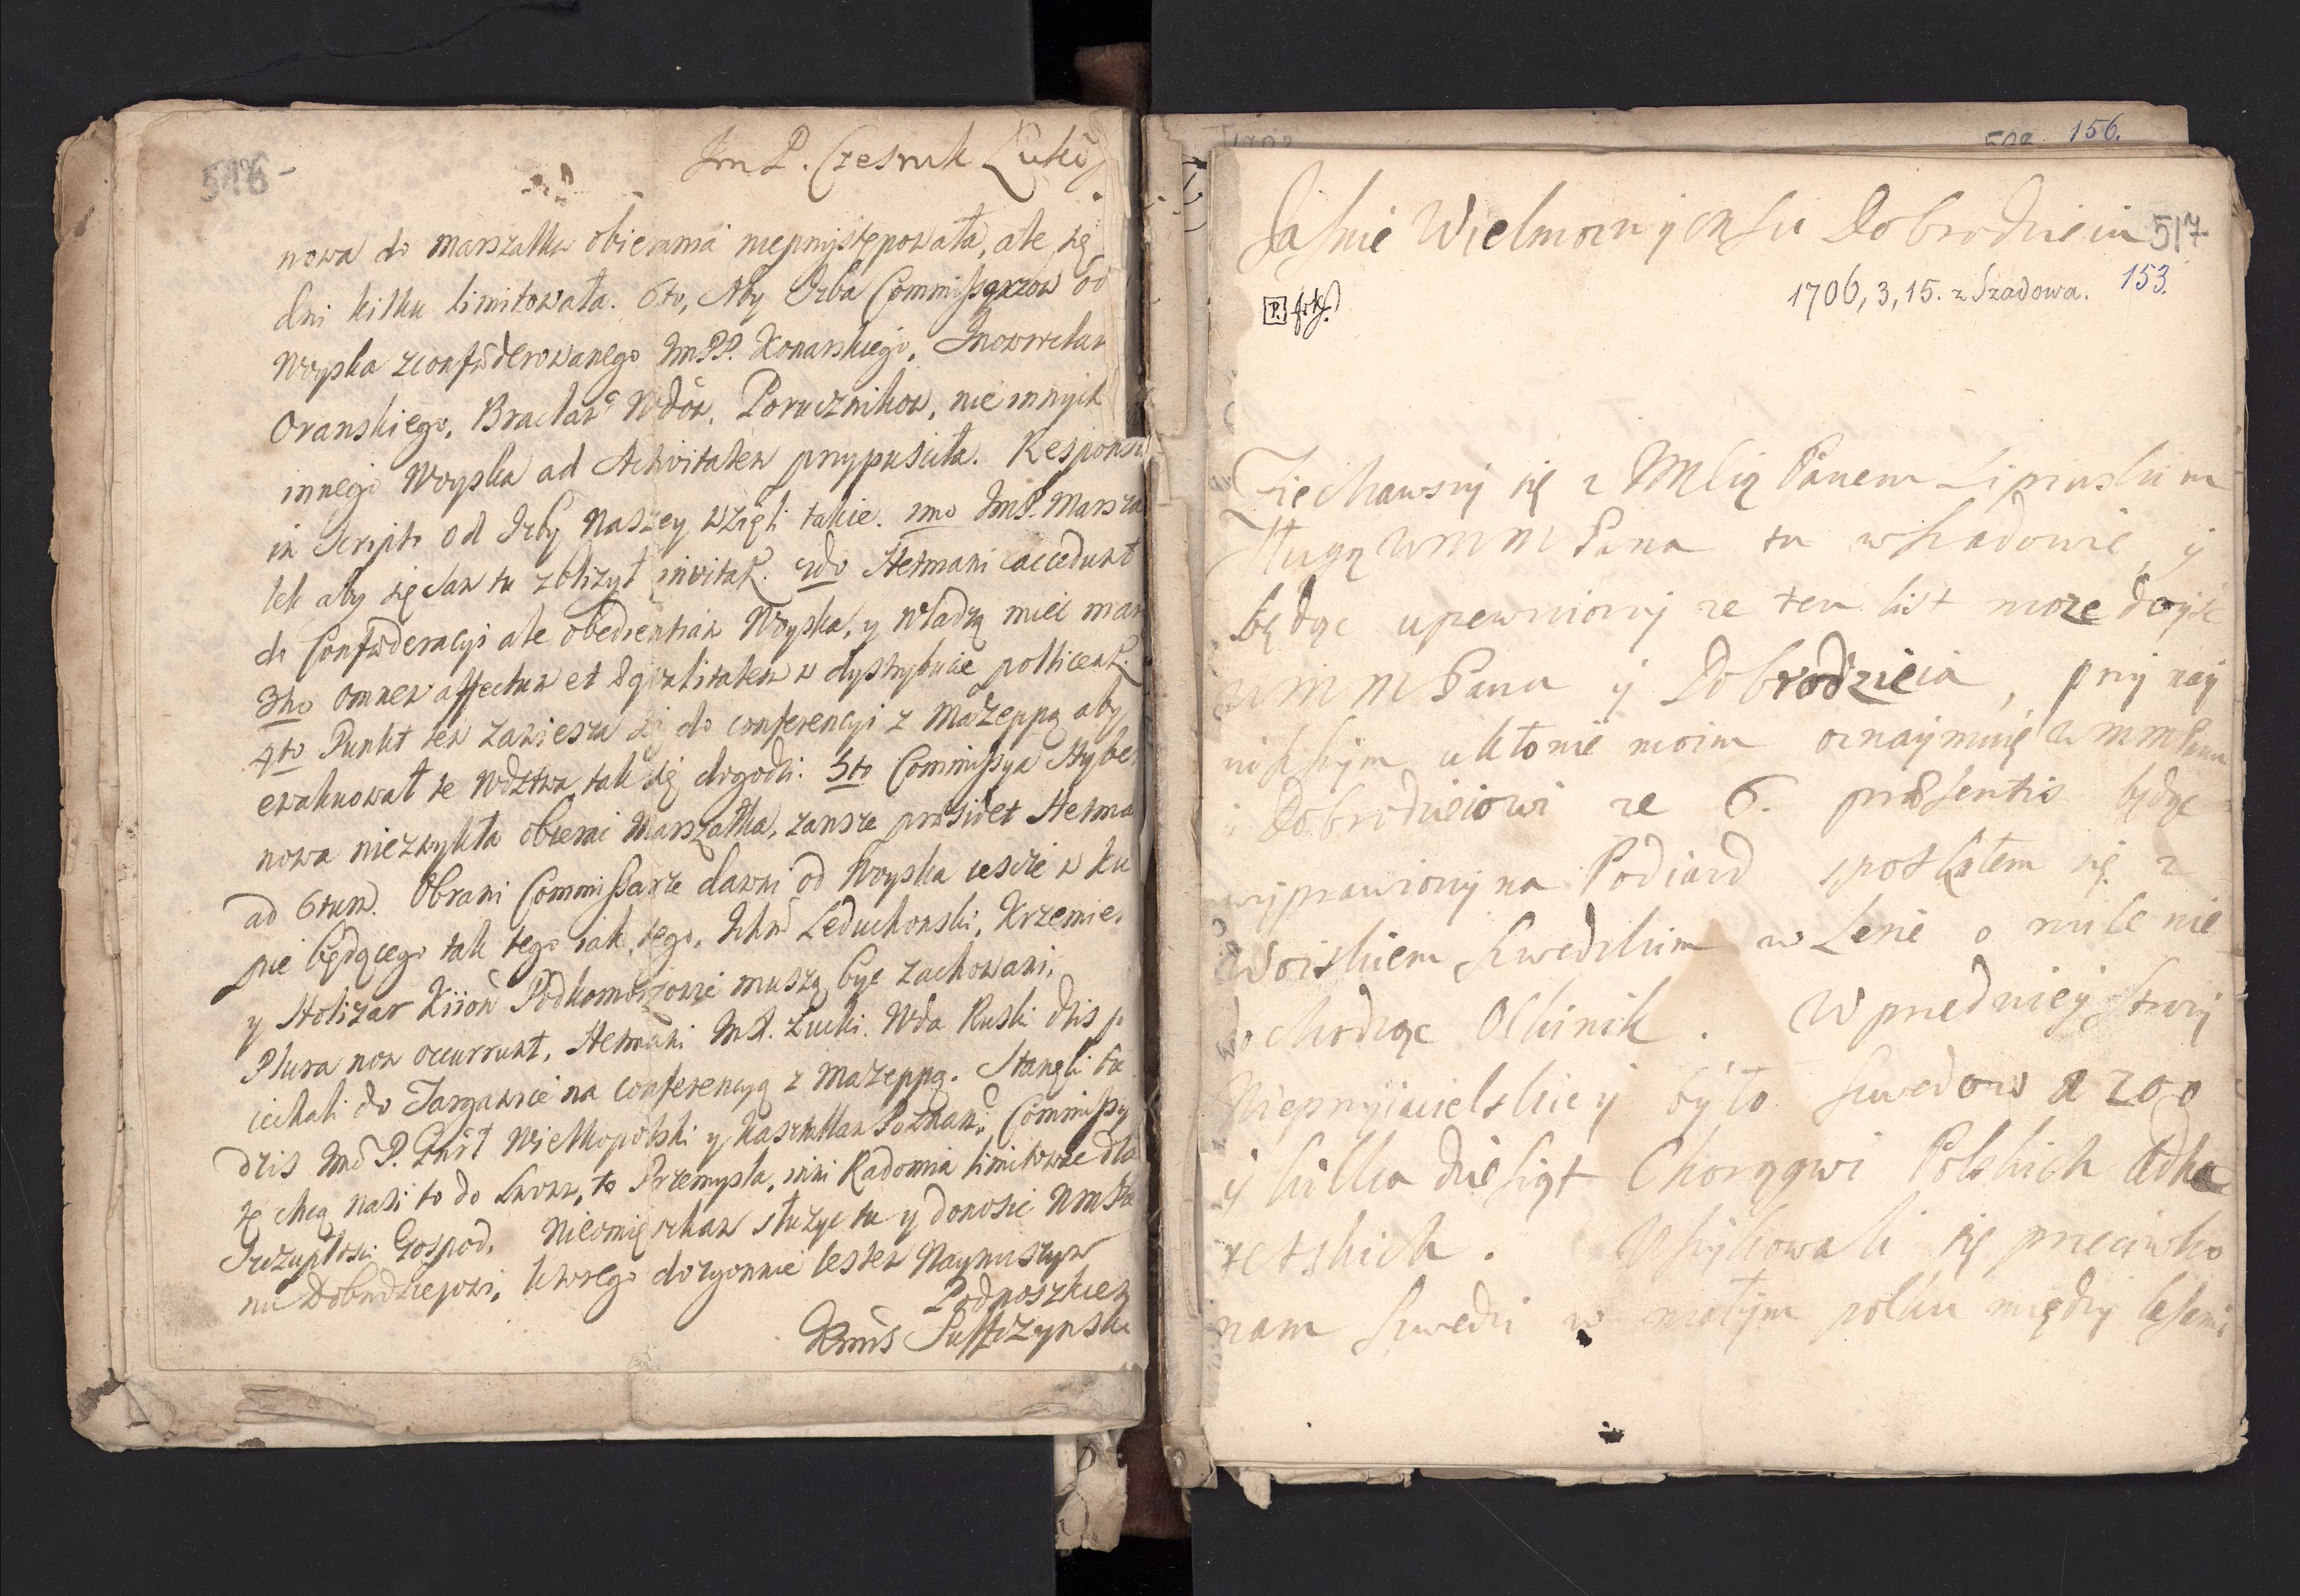 516
Jm P. Czesnik Łukō
nowa do marszałka obierania nieprzystępowała, ale się
dni kilku limitowała. 6to, Aby Izba Commissarzow od
Woyska zconfœderowanego Im PP. Konarskiego, Inowrocław
Oranskiego, Bracław Wdōw, Porucznikow, nie innych
innego Woyska ad Activitatem przypuściła. Respons
in scripto od Izby Naszey wzięli takie. 1mo ImP. Marsza
lek aby się sam tu zbliżył invitat. 2do Hetmani accedunt
do Confœderacyi ale obedientiam Woyska, y władzą mieć
3tio Omnem affectum et æqualitatem w dystrybucie pollicent.
4to Punkt ten zawiesza się do conferencyi z Mazeppą aby
ewakuował te Wdztwa, tak się dogodzi. 5to Commissya Hybe.
nowa niezwykła obierać Marszałka, zawsze præsidet Hetma
ad 6tum. Obrani Commissarze dawni od Woyska ieszcze w ku
pie będącego tak tego iak tego, Leduchowski, Krzemie.
y Holizar Kiiow Podkomorzowie muszą być zachowani.
Plura non occurrunt, Hetmani ImP. Łucki. Wda Ruski dzis p
iechali do Targawice na conferencyą z Mazeppą. Stanęli tu
dzis Imć P. Wielkopolski y Kasztellan Poznań: Commissy
ę chcą nasi to do Lwowa, to Przemysla, inni Radomia limitować dla
szczupłosci Gospod. Nieomięszkam służyć tu y donosić WmPa
nu Dobrodzieiowi, ktorego dozgonnie iestem Naynizszym
Podnoszkiem
Suffczynski
156.
Jasnie Wielmozny Msci Dobrodzieiu
517
1706, 3, 15. z Szadowa.
153.
Ziechawszy się z JMscią Panem Lipinskim
sługą WMM Pana tu w Szadowie, y
będąc upewniony ze ten list moze doyść
WMM Pana y Dobrodzieia, przy nay
nisszym ukłonie moim oznaymuię WMMPanu
i Dobrodzieiowi ze 6. præsentis będąc
wyprawiony na Podiazd spotkałem się z
Woiskiem szwedzkim w lesie o mile nie
dochodząc Olkinik. W przedniey strazy
Nieprzyiacielskiey było szwedow 1200
y kilka dziesiąt Chorągwi Polskich Adhe
rentskich. Uszykowali się przeciwko
nam szwedzi w małym polku między lasami